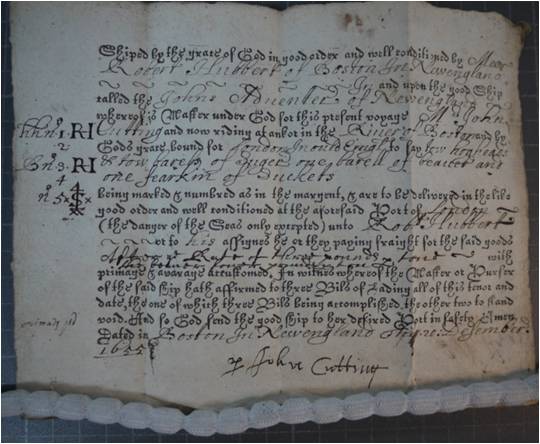 Shiped by the grace of God in good order and well conditioned by
Robert Hubbert of Boston In Newengland
In and upon the good Ship
called the Johns Adventer of Newengland
whereof is Master under God for this present voyage Mr John
Cutting and now riding at ankor in the River of Boston and by
Gods grace bound for London In ould Engld to say
& tow barels of Suger one barell of and
one fearkin of Duckets
RI
RI
being marked & numbred as in the margent, & are to be delivered in the like
good order and well conditioned at the aforesaid Port of London
(the danger of the Seas only excepted) unto Robt Hubbert
or to his assignes he or they paying fraight for the said goods
Aftor ye Rate of three pounds tone with
primage & avarage accustomed. In witnes whereof the Master or Purser
of the said ship hath affirmed to three Bils of Lading all of this tenor and
date, the one of which three Bils being accomplished, the other two to stand
void. And so God send the good ship to her desired Port in safety Amen
Dated in Boston In Newengland
1655
John Cutting